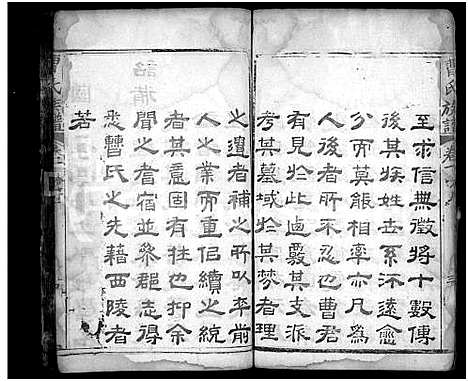 曹氏族譜
至求信無徵將十數傳
後其族姓世系渙遠愈
分而莫能相率允為
人後者所不忍也曹君
有見於此遍數其支派
考其墓域於其夢者理
之遺者補之所以率前
人之業而重侣續之統
者其意固有性也抑余
聞之耆宿並參郡志得
悉曹氏之先藉西陵者
若